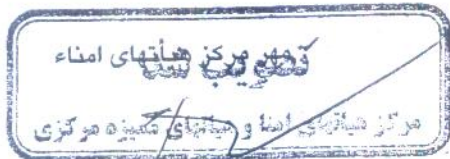 مهر مرکز هیأتهای امناء
تصویب شد
مرکز هیأتهای امنا و هیأتهای ممیزه مرکزی